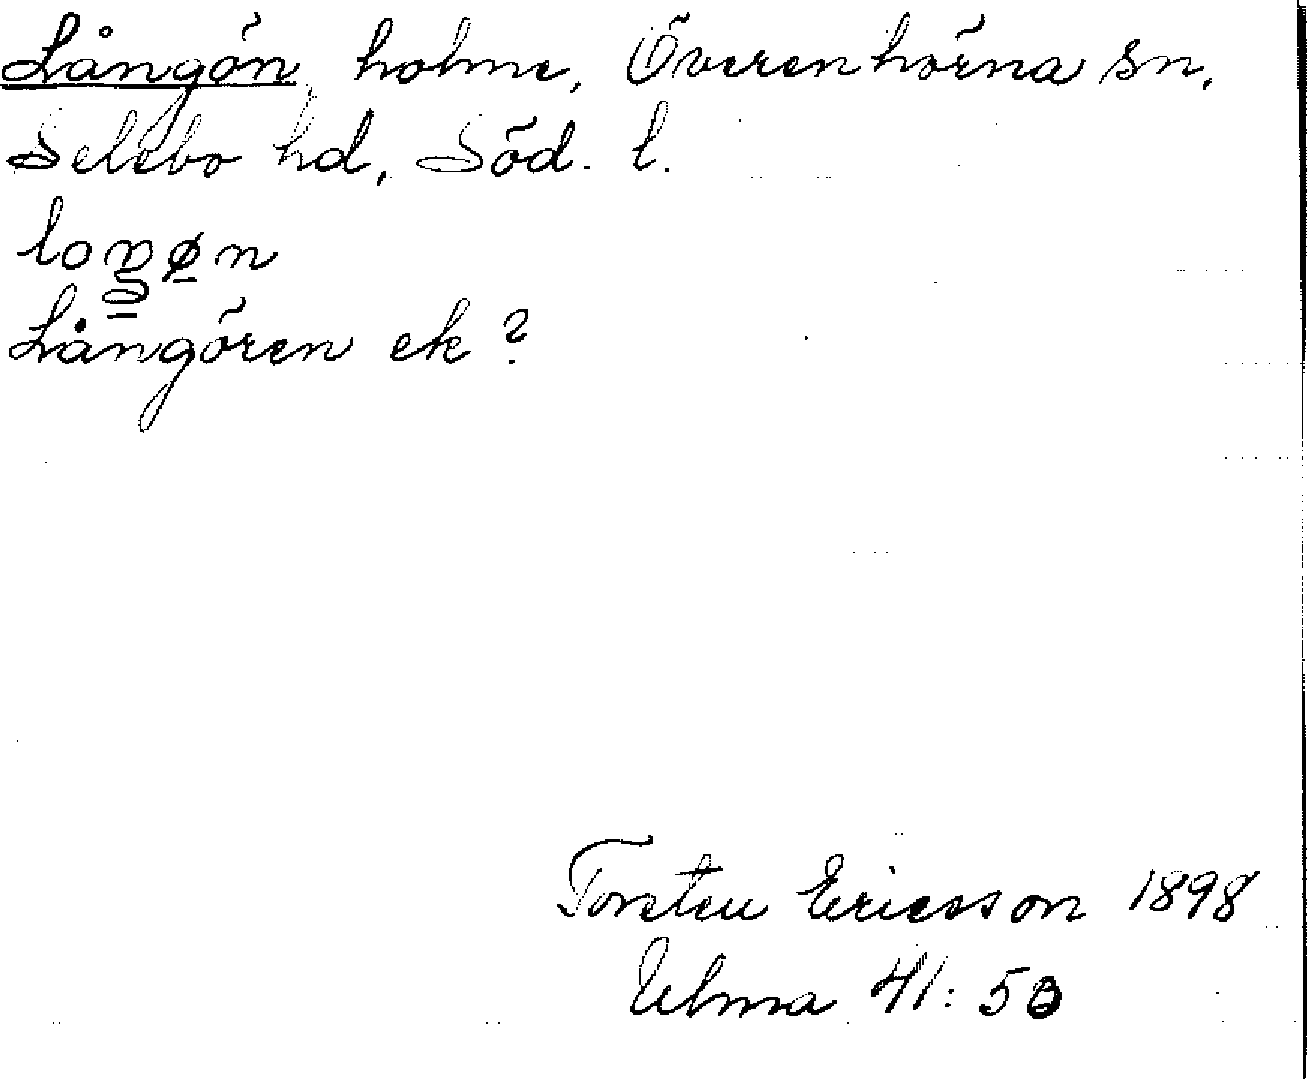 Långön, holme, Överenhörna sn,
Selebo hd, Söd. l.
Långören ek?
Torsten Ericsson 1898
Ulma 41: